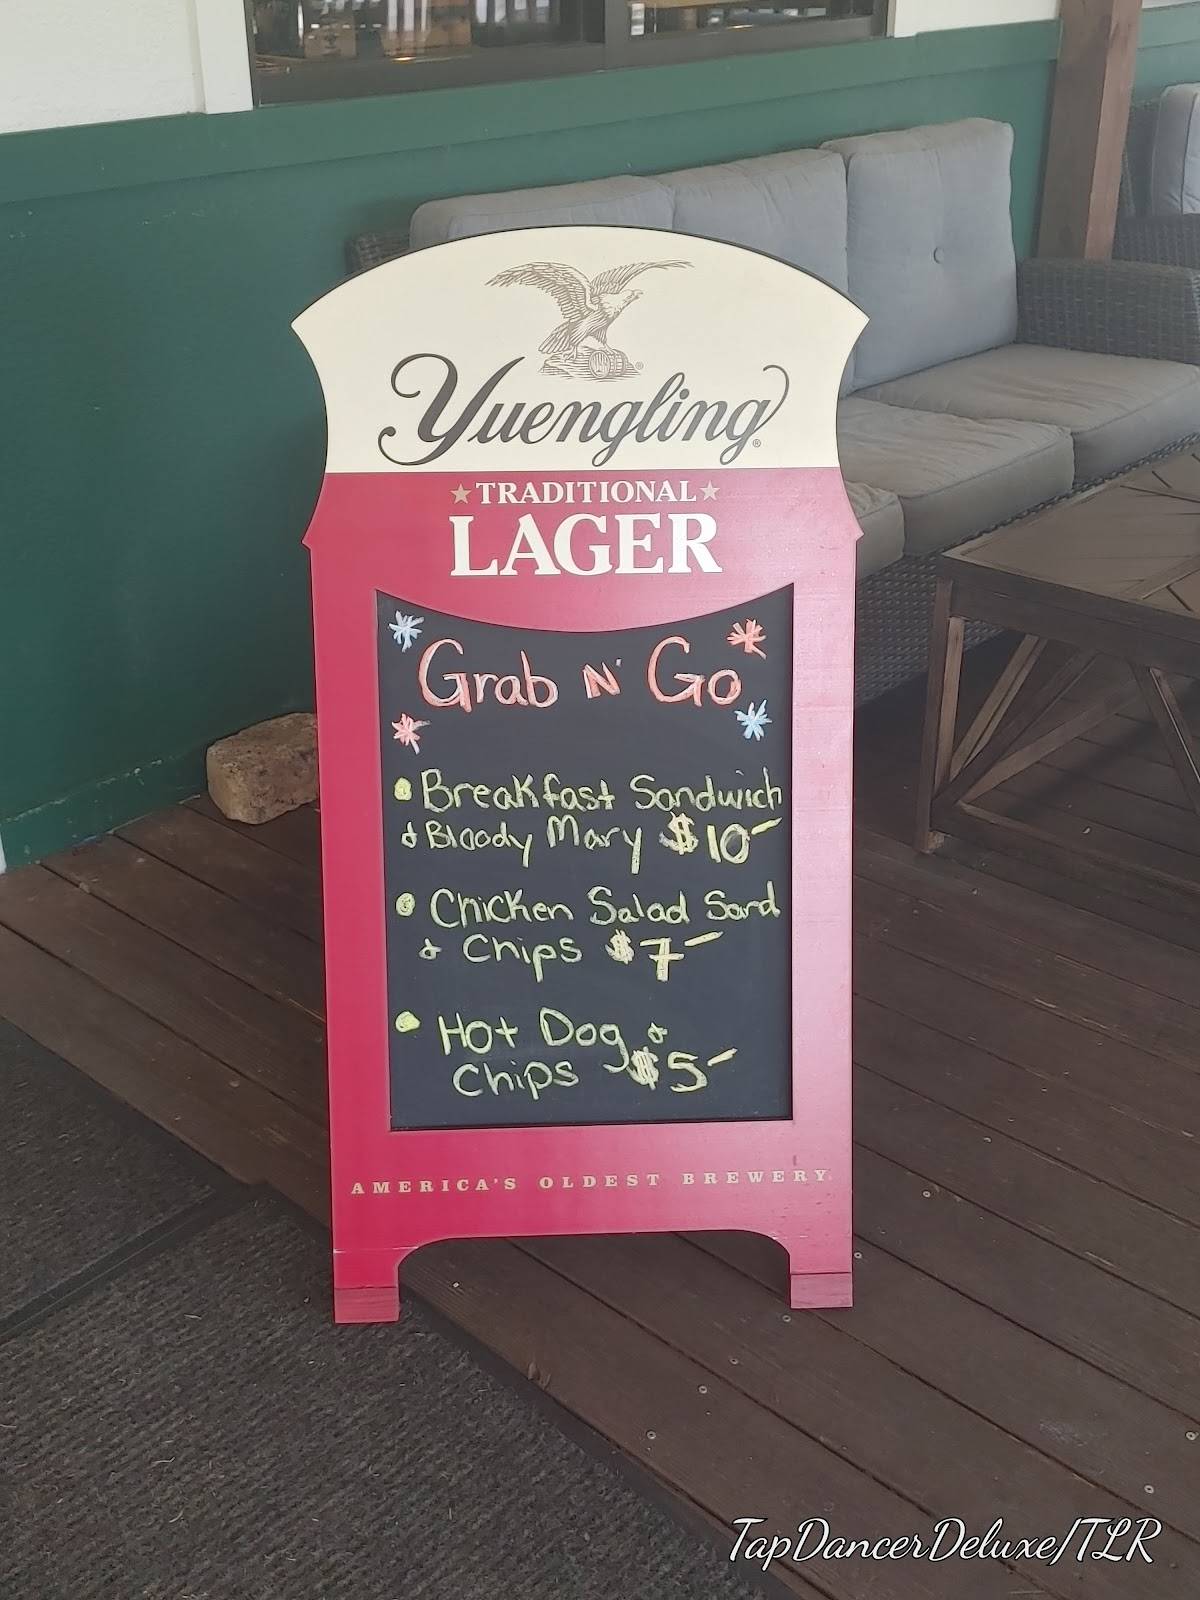 Yuengling®
TRADITIONAL
LAGER
Grab N' Go
• Breakfast Sandwich
& Bloody Mary $10-
• Chicken Salad Sand
& Chips $7-
• Hot Dog &
Chips $5-
AMERICA'S OLDEST BREWERY
TapDancerDeluxe/TLR